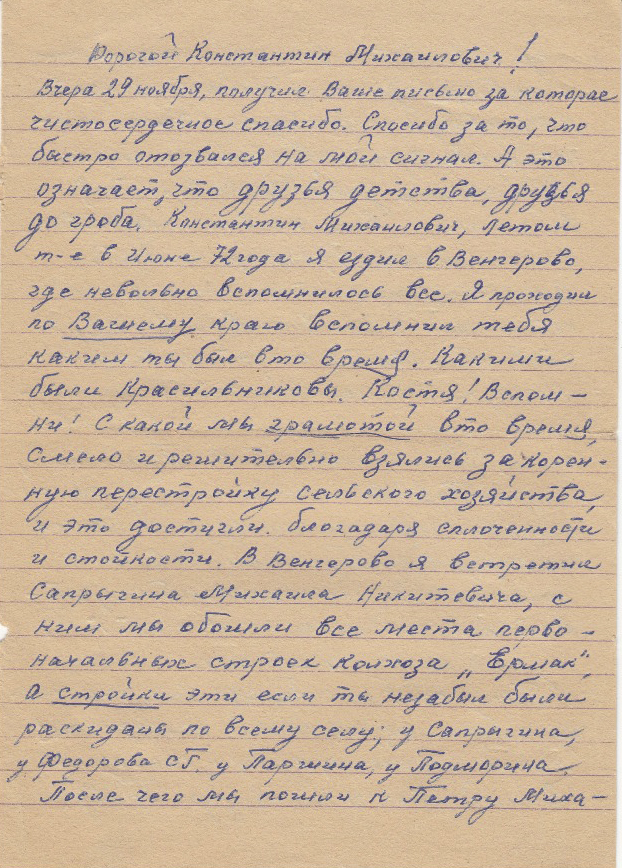 Дорогой Константин Михайлович!
Вчера 29 ноября, получил Ваше письмо за которае
чистосердечное спасибо. Спосибо за то, что
быстро отозвался на мой сигнал. А это
означает, что друзья детства, друзья
до гроба. Канстантин Михаилович, летом
т-е в Июне 72 года я ездил в Венгерово,
где невольно вспомнилось все. Я проходил
по Вашему краю вспомнил тебя
каким ты был в то время. Какими
были Красильниковы. Костя! Вспом-
ни! С какой мы грамотой в то время,
смело и решительно взялись за корен-
ную перестройку сельского хозяйства,
и это достигли. благодаря сплоченности
и стойкости. В Венгерово я встретил
Сапрыгина Михаила Никитевича, с
ним мы обошли все места перво-
начальных строек колхоза „Ермак",
А стройки эти если ты незабыл были
раскиданы по всему селу; у Сапрыгина,
у Федорова СГ. у Паршина, у Подморина.
После чего мы пошли к Петру Миха-